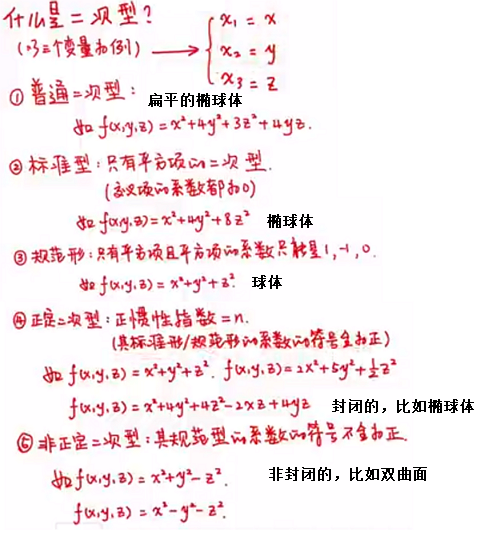 什么是二次型?
(以三个变量为例) → { x₁ = x
x₂ = y
x₃ = z
① 普通二次型: 扁平的椭球体
如 f(x,y,z) = x²+4y²+3z²+4yz.
② 标准型:只有平方项的二次型.
(交叉项的系数都为0)
如 f(x,y,z)=x²+4y²+8z² 椭球体
③ 规范形:只有平方项且平方项的系数只能是1,-1,0.
如 f(x,y,z) = x²+y²+z². 球体
④ 正定二次型:正惯性指数=n.
(其标准形/规范形的系数的符号全为正)
如 f(x,y,z) = x²+y²+z². f(x,y,z)=2x²+5y²+½z²
f(x,y,z)=x²+4y²+4z²-2xz+4yz 封闭的,比如椭球体
⑤ 非正定二次型:其规范型的系数的符号不全为正.
如 f(x,y,z) = x²+y²-z². 非封闭的,比如双曲面
f(x,y,z) = x²-y²-z².